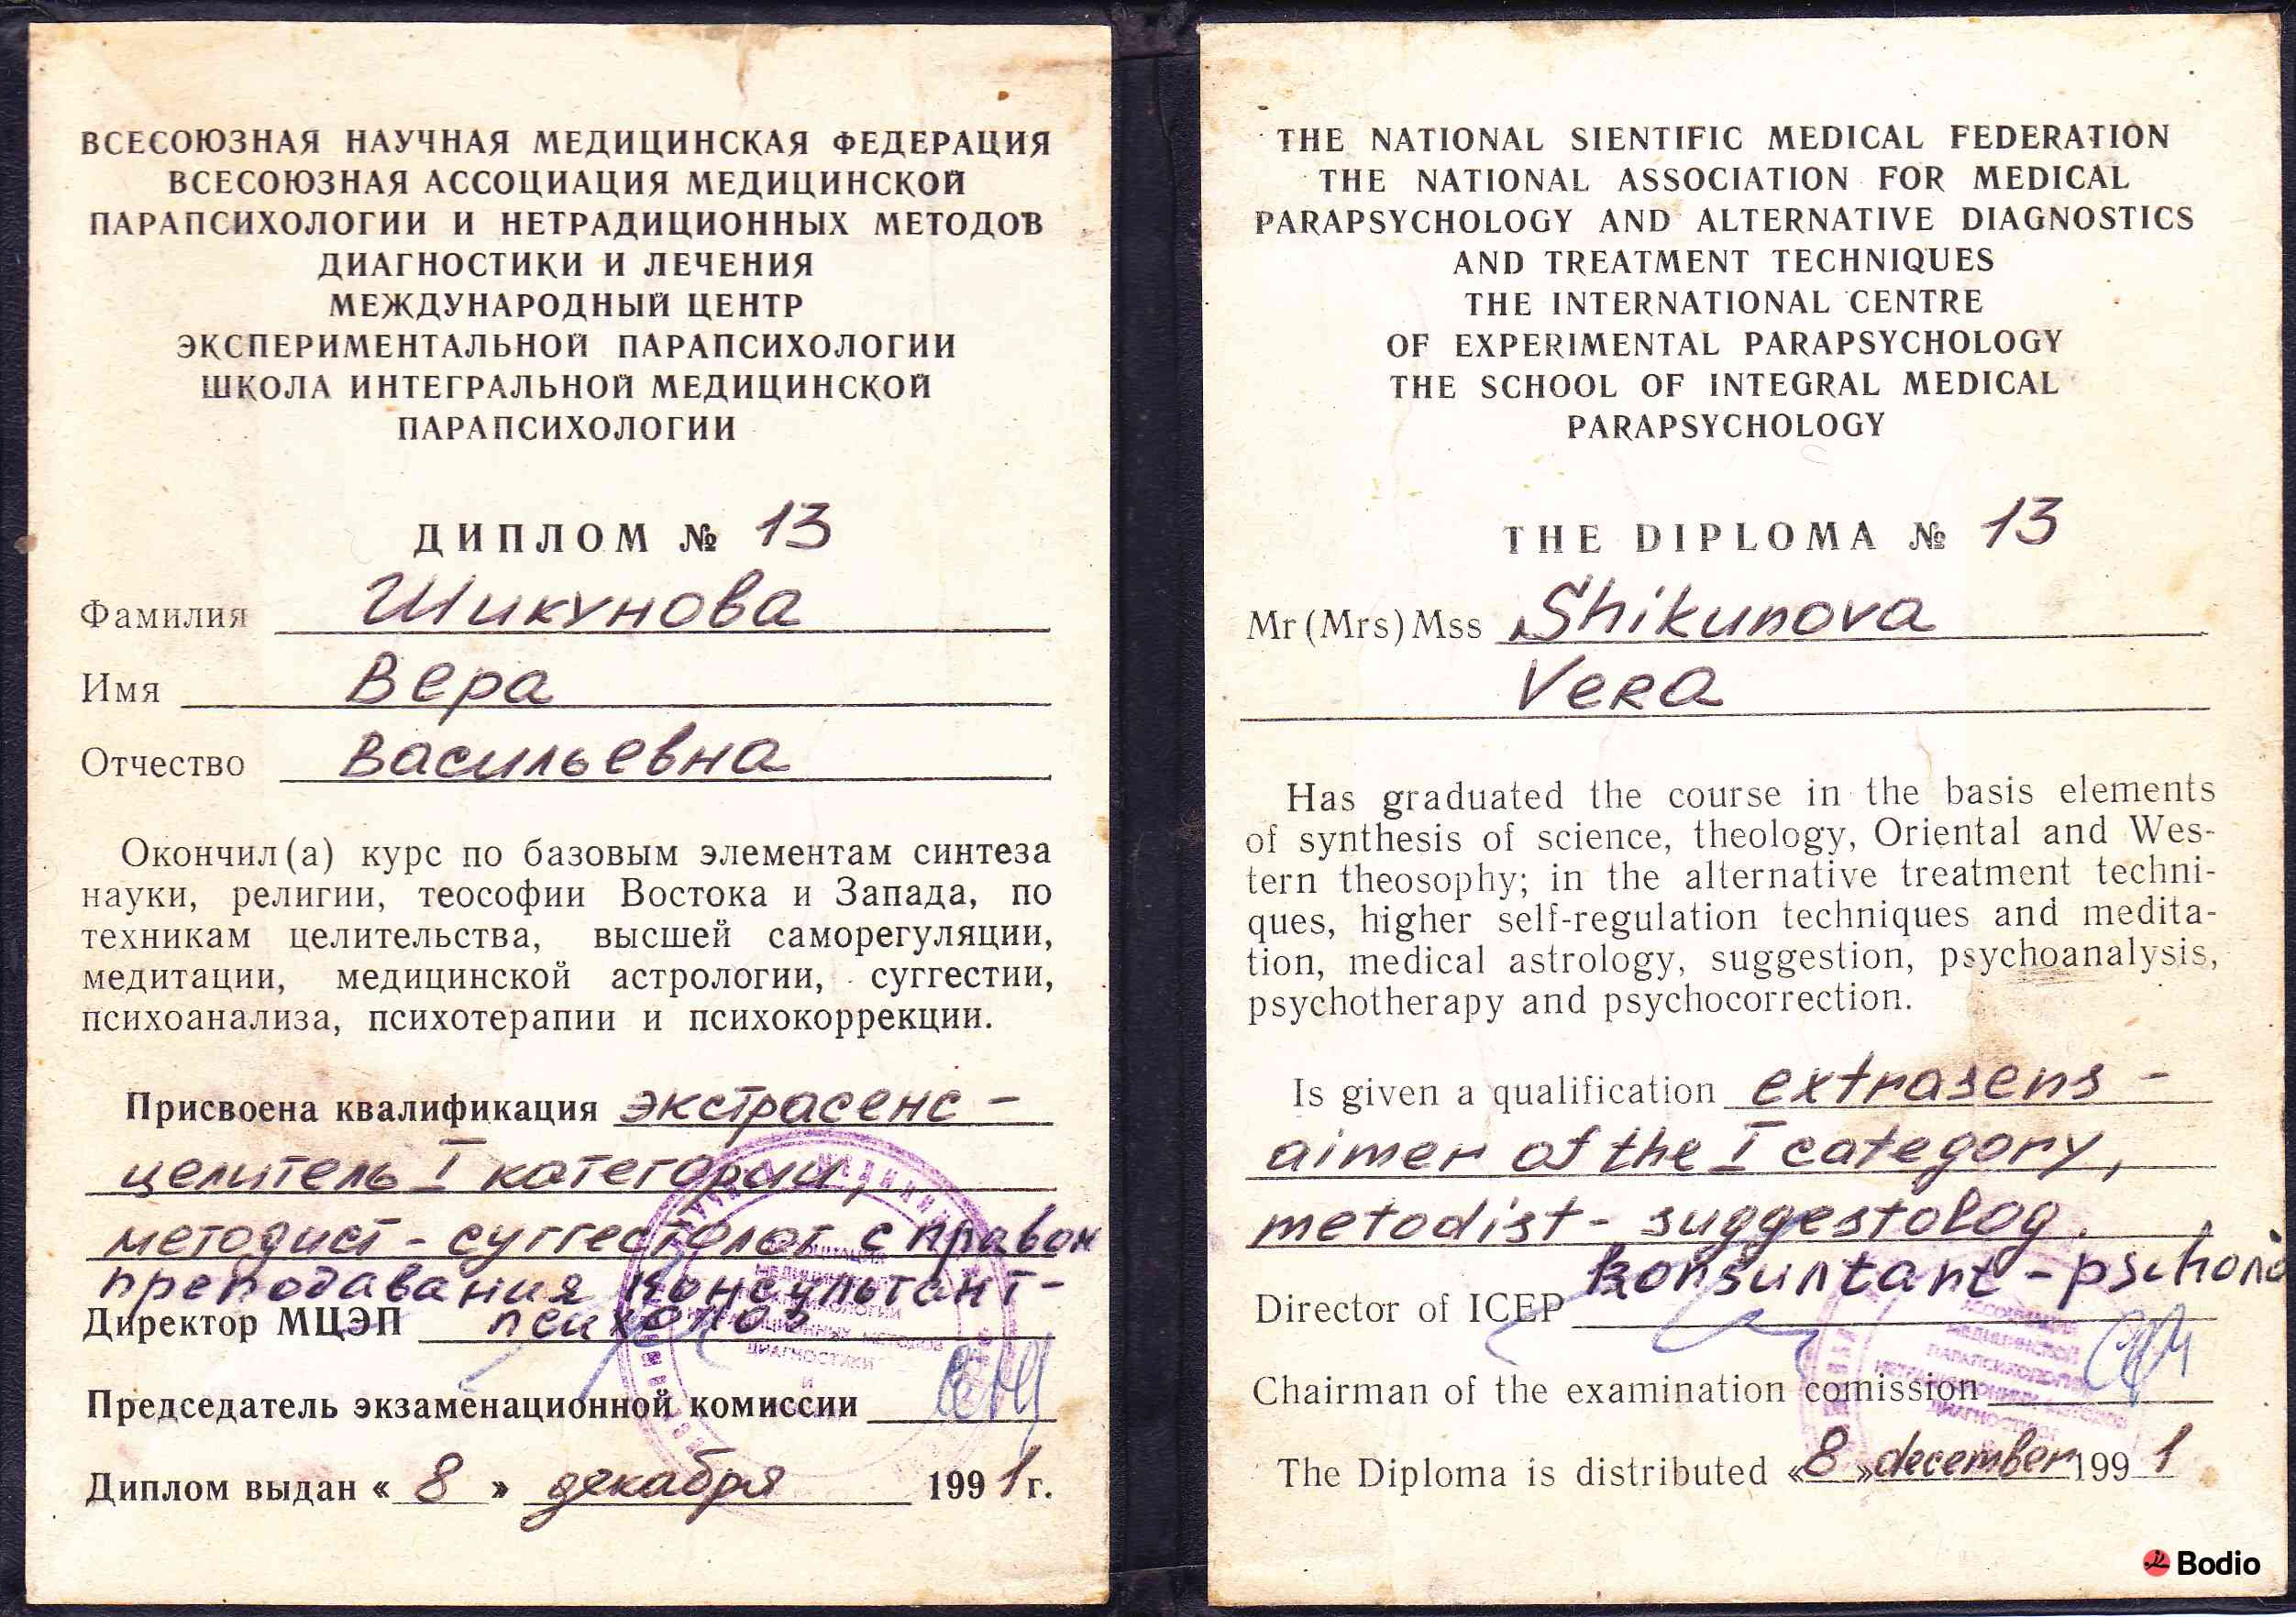 ВСЕСОЮЗНАЯ НАУЧНАЯ МЕДИЦИНСКАЯ ФЕДЕРАЦИЯ
ВСЕСОЮЗНАЯ АССОЦИАЦИЯ МЕДИЦИНСКОЙ
ПАРАПСИХОЛОГИИ И НЕТРАДИЦИОННЫХ МЕТОДОВ
ДИАГНОСТИКИ И ЛЕЧЕНИЯ
МЕЖДУНАРОДНЫЙ ЦЕНТР
ЭКСПЕРИМЕНТАЛЬНОЙ ПАРАПСИХОЛОГИИ
ШКОЛА ИНТЕГРАЛЬНОЙ МЕДИЦИНСКОЙ
ПАРАПСИХОЛОГИИ
ДИПЛОМ № 13
Фамилия Шикунова
Имя Вера
Отчество Васильевна
Окончил(а) курс по базовым элементам синтеза
науки, религии, теософии Востока и Запада, по
техникам целительства, высшей саморегуляции,
медитации, медицинской астрологии, суггестии,
психоанализа, психотерапии и психокоррекции.
Присвоена квалификация экстрасенс -
целитель I категории,
методист - суггестолог с правом
преподавания консультант-
Директор МЦЭП психолог
Председатель экзаменационной комиссии
Диплом выдан « 8 » декабря 1991 г.
THE NATIONAL SIENTIFIC MEDICAL FEDERATION
THE NATIONAL ASSOCIATION FOR MEDICAL
PARAPSYCHOLOGY AND ALTERNATIVE DIAGNOSTICS
AND TREATMENT TECHNIQUES
THE INTERNATIONAL CENTRE
OF EXPERIMENTAL PARAPSYCHOLOGY
THE SCHOOL OF INTEGRAL MEDICAL
PARAPSYCHOLOGY
THE DIPLOMA № 13
Mr (Mrs) Mss Shikunova
Vera
Has graduated the course in the basis elements
of synthesis of science, theology, Oriental and Wes-
tern theosophy; in the alternative treatment techni-
ques, higher self-regulation techniques and medita-
tion, medical astrology, suggestion, psychoanalysis,
psychotherapy and psychocorrection.
Is given a qualification extrasens -
aimer of the I category,
metodist - suggestolog.
konsuntant -
Director of ICEP
Chairman of the examination comission
The Diploma is distributed « 8 » december 1991
Bodio